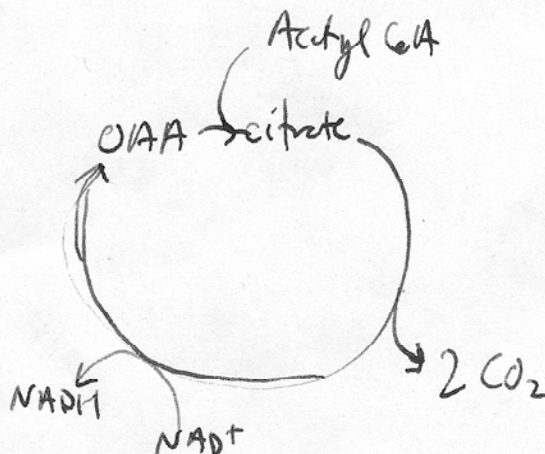 Acetyl CoA
OAA → citrate
2 CO₂
NADH
NAD⁺